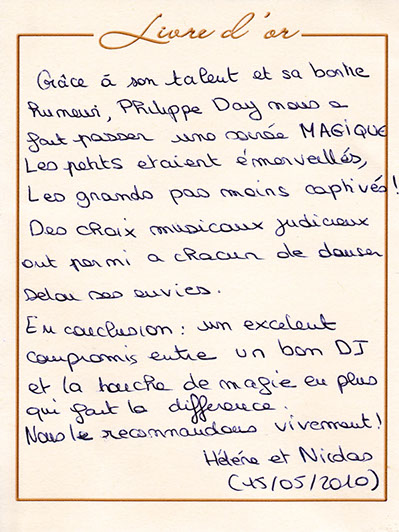 Livre d'or
Grâce à son talent et sa bonne
humeur, Philippe Day nous a
fait passer une soirée MAGIQUE
Les petits etaient émerveillés,
Les grands pas moins captivés !
Des choix musicaux judicieux
ont permi a chacun de danser
selon ses envies.
En conclusion : un excelent
compromis entre un bon DJ
et la touche de magie en plus
qui fait la différence.
Nous le recommandons vivement !
Hélène et Nicolas
(15/05/2010)